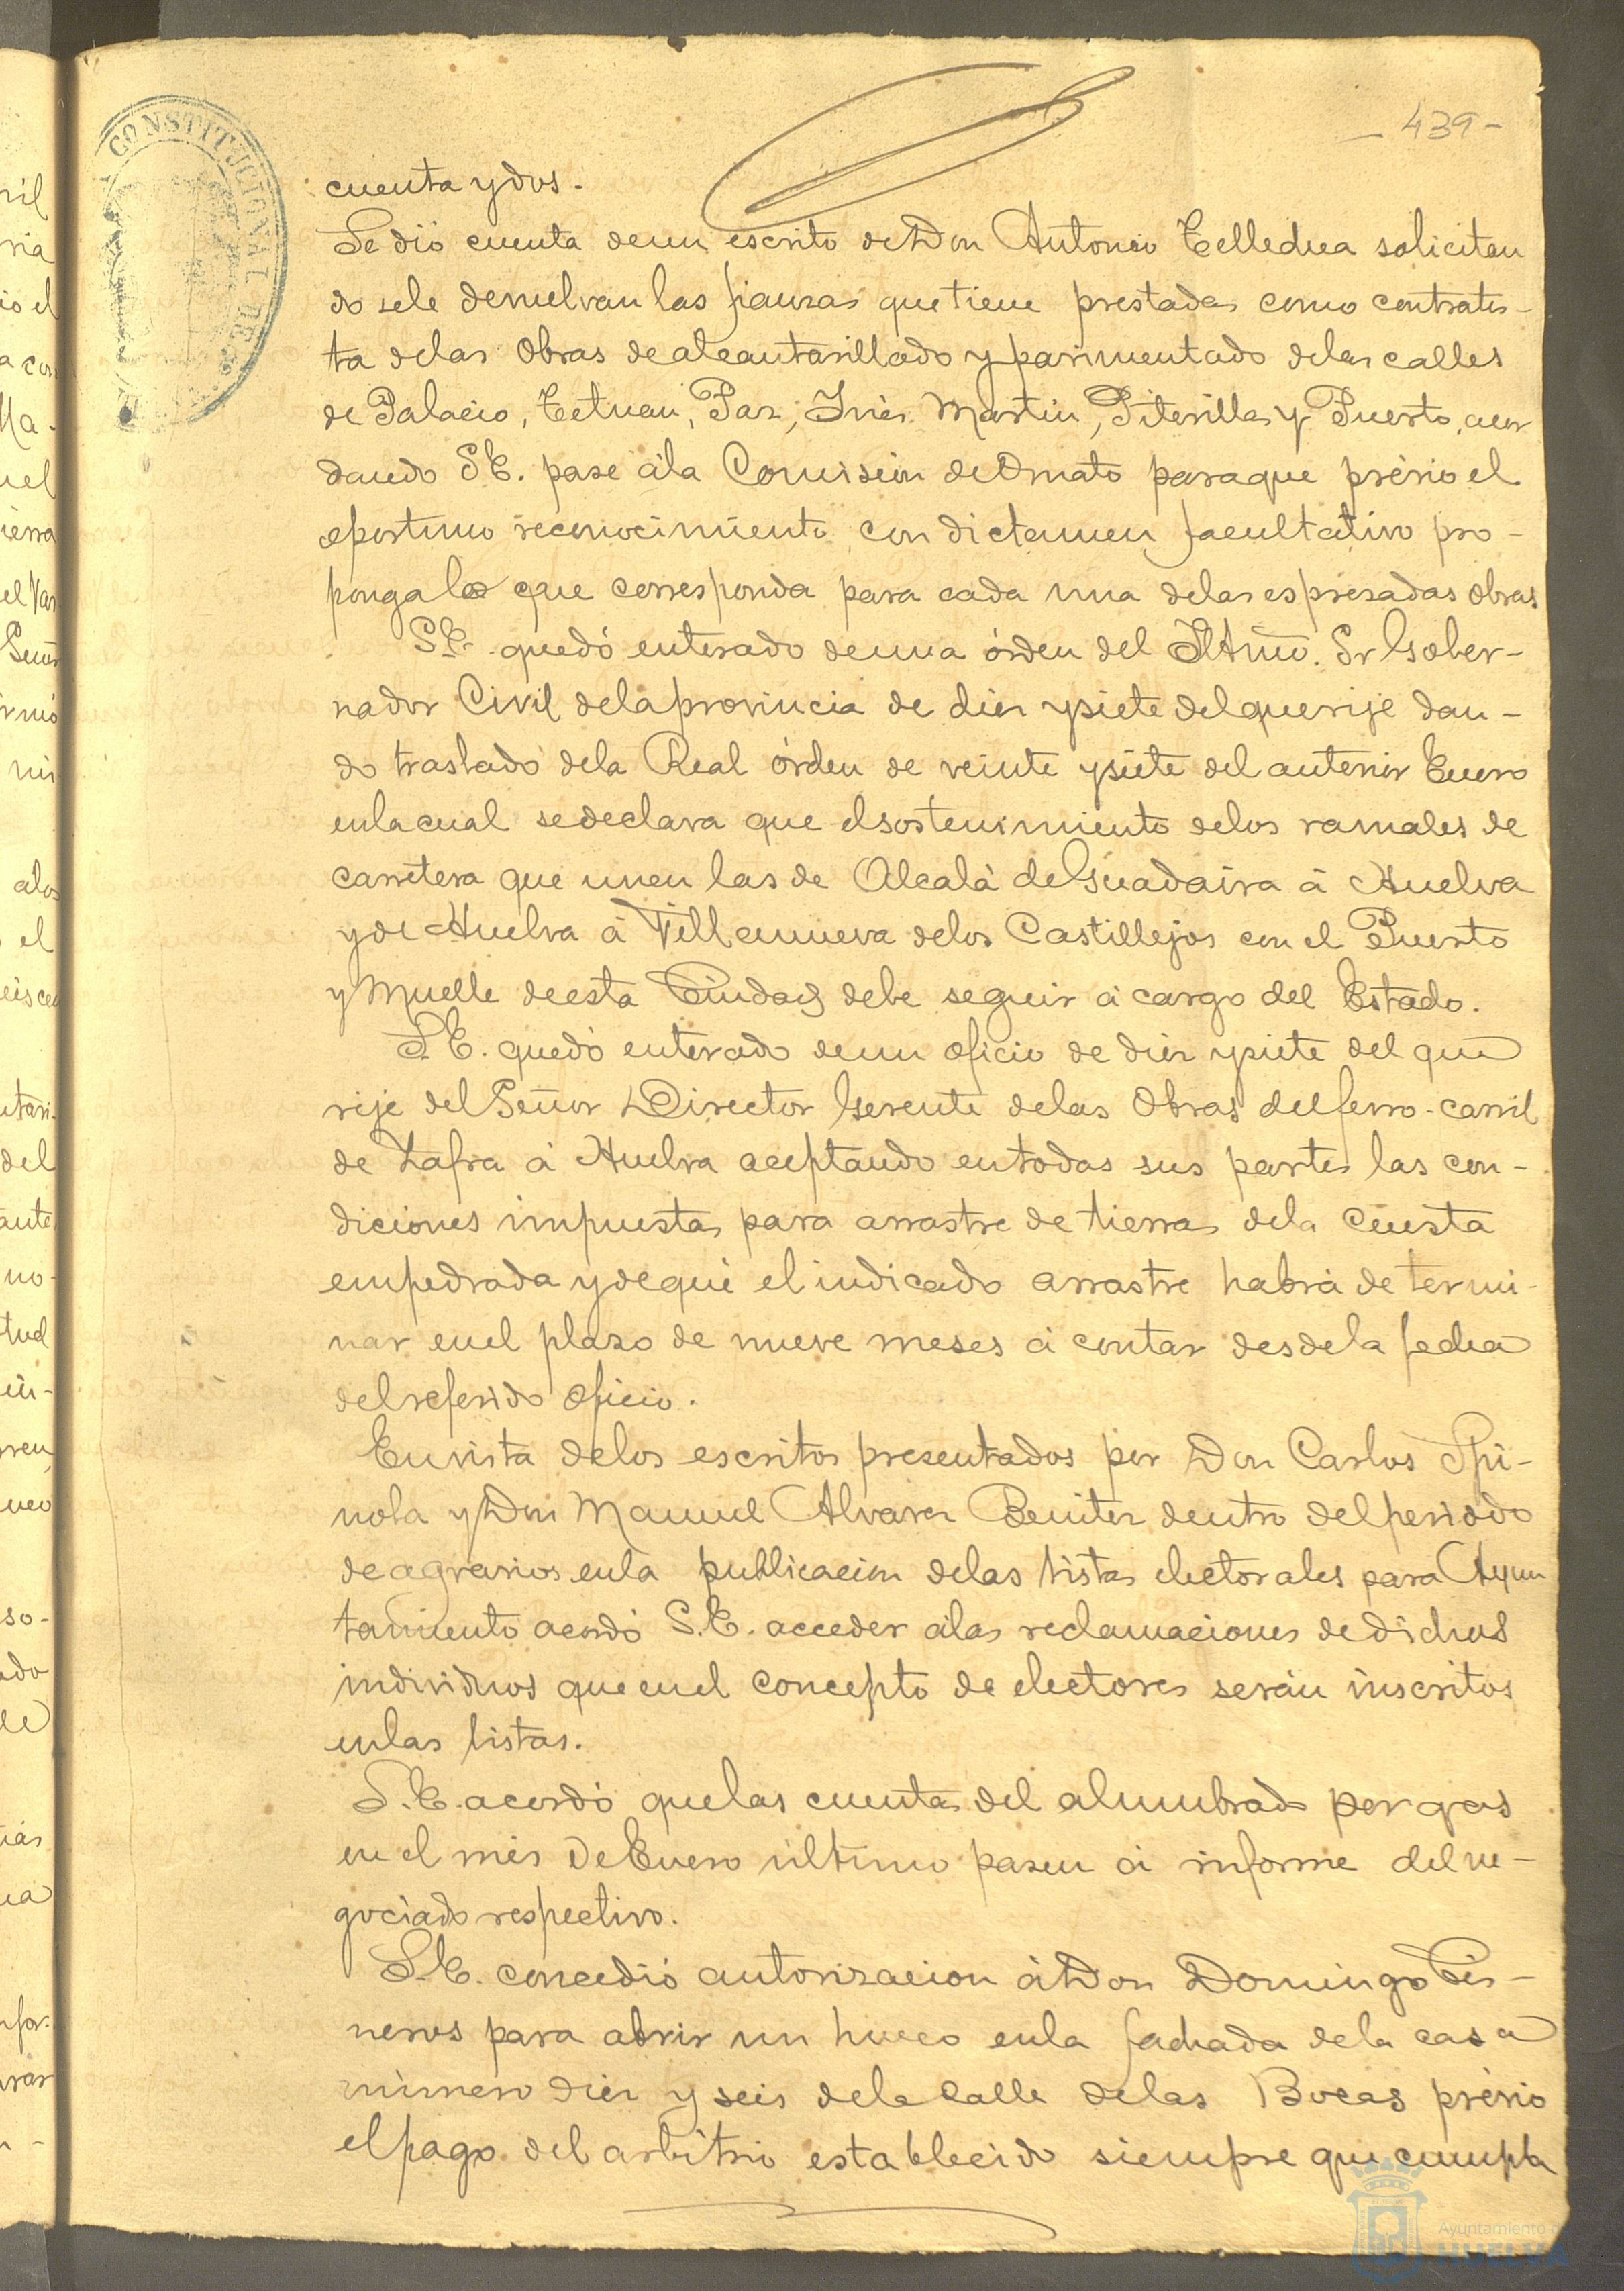 - 439 -
CONSTITUCIONAL DE
cuenta y dos.
Se dió cuenta de un escrito de Don Antonio Telledua solicitan
do se le devuelvan las fianzas que tiene prestadas como contratis-
ta de las Obras de alcantarillado y pavimentado de las calles
de Palacio, Tetuan, Paz, Inés Martin, Piterilla y Puerto, acor
dando S.E. pase á la Comisión de Ornato para que prévio el
oportuno reconocimiento con dictamen facultativo pro-
ponga lo que corresponda para cada una de las espresadas obras
S.E. quedó enterado de una órden del Iltmo. Sr Gober-
nador Civil de la provincia de diez y siete del que rije dan-
do traslado de la Real órden de veinte y siete del anterior Enero
en la cual se declara que el sostenimiento de los ramales de
carretera que unen las de Alcalá de Guadaira á Huelva
y de Huelva á Villanueva de los Castillejos con el Puerto
y Muelle de esta Ciudad debe seguir á cargo del Estado.
S.E. quedó enterado de un oficio de diez y siete del que
rije del Señor Director Gerente de las Obras del ferro-carril
de Zafra á Huelva aceptando en todas sus partes las con-
diciones impuestas para arrastre de tierras de la Cuesta
empedrada y de que el indicado arrastre habrá de termi-
nar en el plazo de nueve meses á contar desde la fecha
del referido oficio.
En vista de los escritos presentados por Don Carlos Spi-
nola y Don Manuel Alvarez Benitez dentro del periodo
de agravios en la publicacion de las listas electorales para Ayun
tamiento acordó S.E. acceder á las reclamaciones de dichos
individuos que en el concepto de electores serán inscritos
en las listas.
S.E. acordó que las cuentas del alumbrado por gas
en el més de Enero último pasen á informe del ne-
gociado respectivo.
S.E. concedió autorizacion á Don Domingo Cis-
neros para abrir un hueco en la fachada de la casa
número diez y seis de la calle de las Bocas prévio
el pago del arbitrio establecido siempre que cumpla
Ayuntamiento de
HUELVA